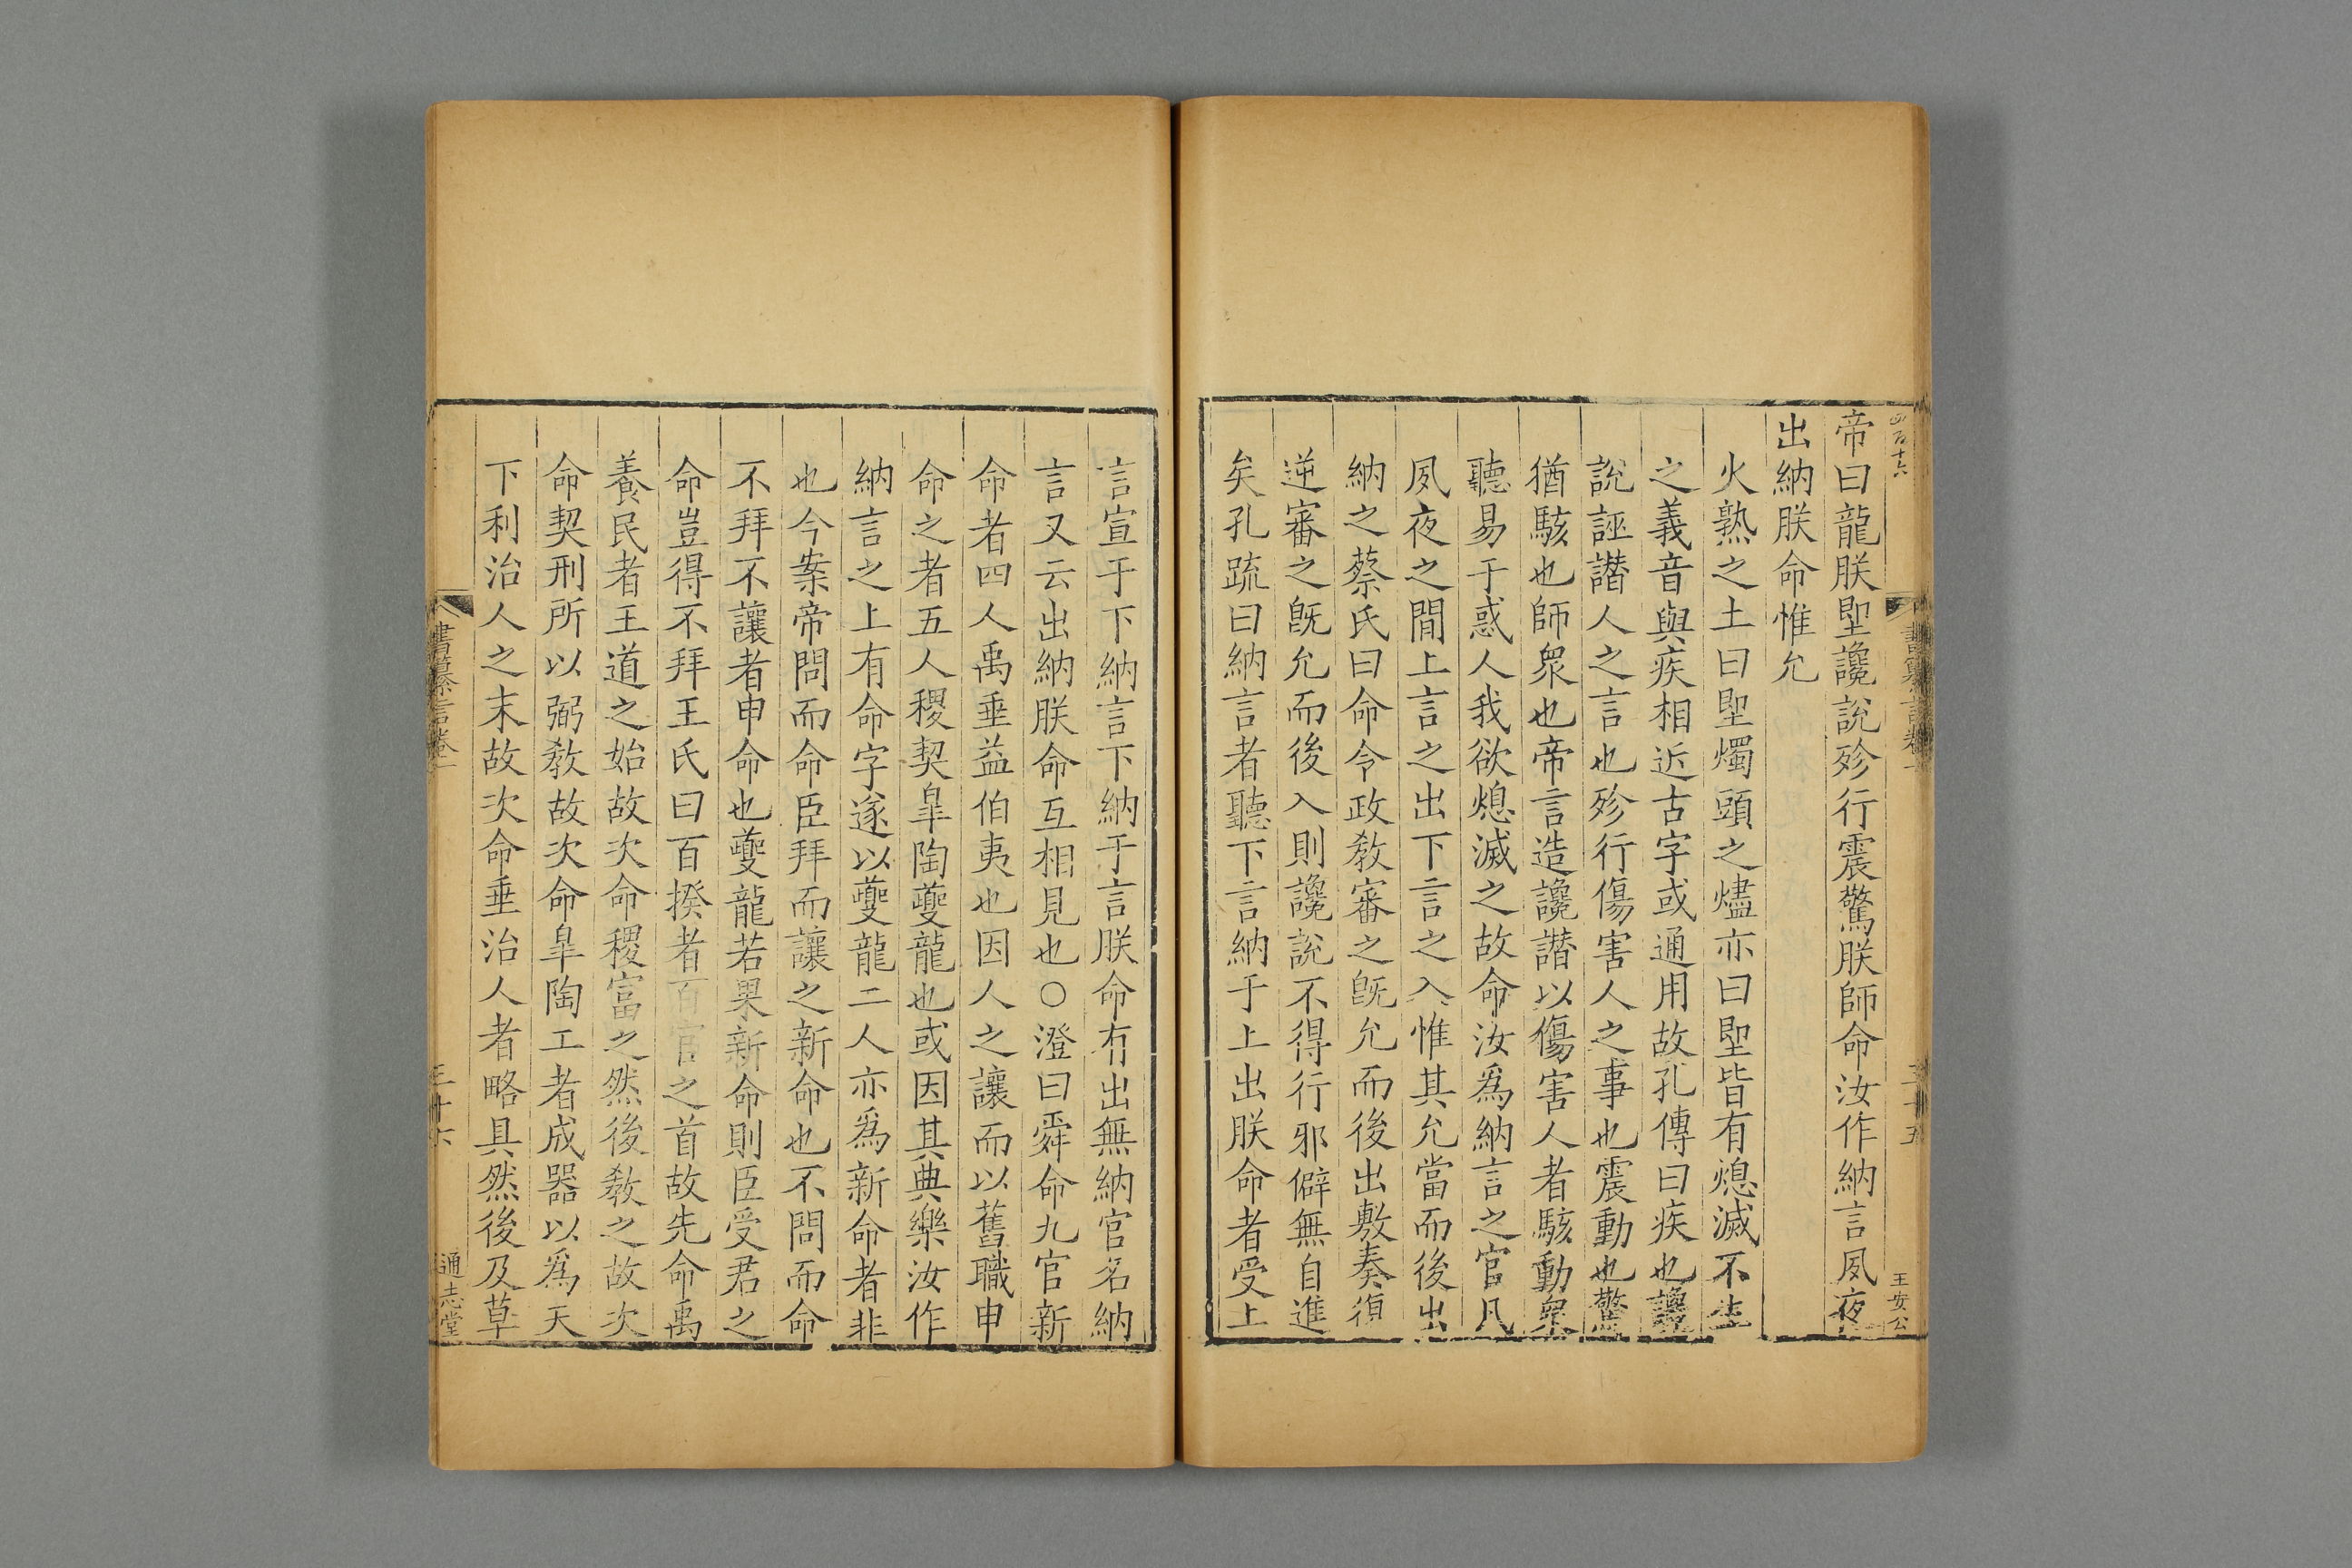 帝曰龍朕堲讒說殄行震驚朕師命汝作納言夙夜
出納朕命惟允
火熟之土曰堲燭頭之燼亦曰堲皆有熄滅不生
之義音與疾相近古字或通用故孔傳曰疾也讒
說誣譖人之言也殄行傷害人之事也震動也驚
猶駭也師衆也帝言造讒譖以傷害人者駭動衆
聽易于惑人我欲熄滅之故命汝爲納言之官凡
夙夜之間上言之出下言之入惟其允當而後出
納之蔡氏曰命令政敎審之旣允而後出敷奏復
逆審之旣允而後入則讒說不得行邪僻無自進
矣孔疏曰納言者聽下言納于上出朕命者受上
王安公
言宣于下納言下納于言朕命有出無納官名納
言又云出納朕命互相見也○澄曰舜命九官新
命者四人禹垂益伯夷也因人之讓而以舊職申
命之者五人稷契臯陶夔龍也或因其典樂汝作
納言之上有命字遂以夔龍二人亦爲新命者非
也今案帝問而命臣拜而讓之新命也不問而命
不拜不讓者申命也夔龍若果新命則臣受君之
命豈得不拜王氏曰百揆者百官之首故先命禹
養民者王道之始故次命稷富之然後敎之故次
命契刑所以弼敎故次命臯陶工者成器以爲天
下利治人之末故次命垂治人者略具然後及草
書纂言卷一
三十六
通志堂